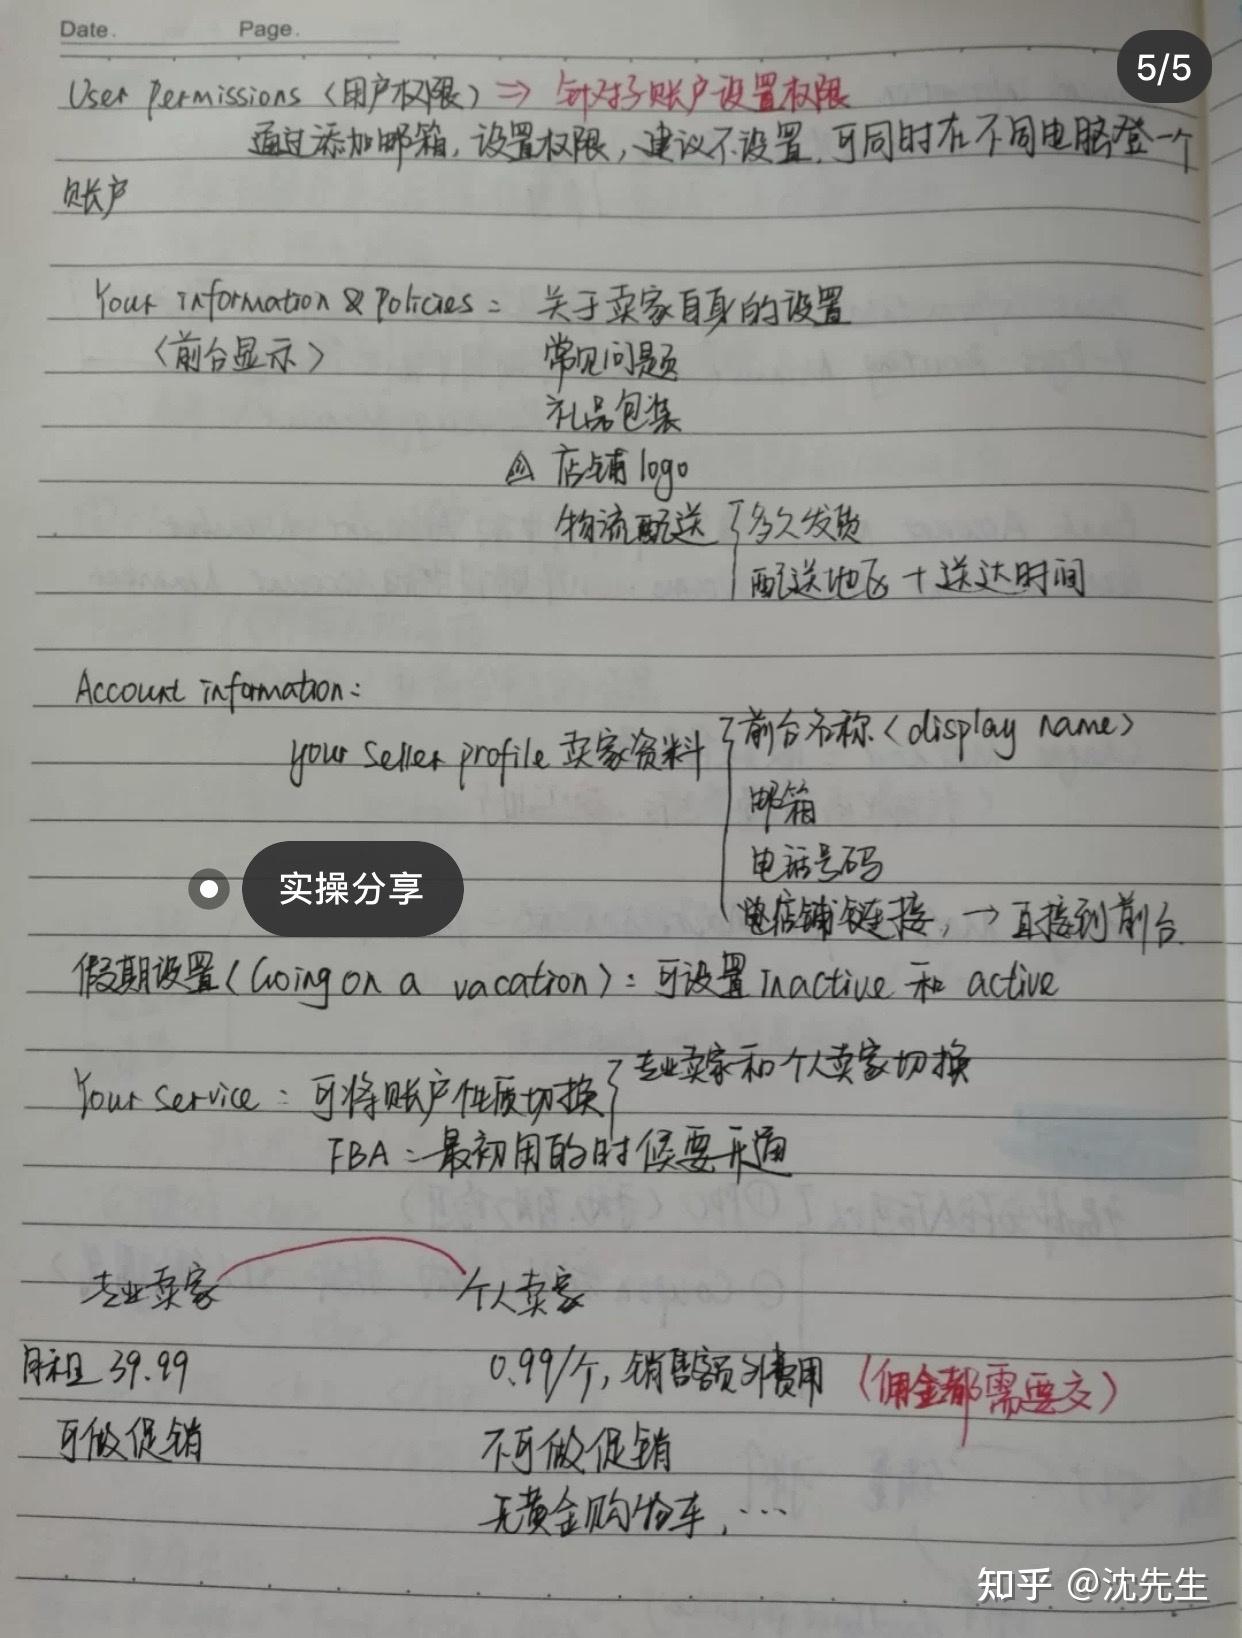 Date.
Page.
5/5
User Permissions (用户权限) ⇒ 针对子账户设置权限
通过添加邮箱,设置权限,建议不设置,可同时在不同电脑登一个
账户
Your information & Policies: 关于卖家自身的设置
<前台显示>
常见问题
礼品包装
店铺logo
物流配送
多久发货
配送地区+送达时间
Account information:
your seller profile 卖家资料
前台名称<display name>
邮箱
电话号码
店铺链接,→直接到前台.
实操分享
假期设置(Going on a vacation):可设置inactive 和 active
Your service: 可将账户性质切换
专业卖家和个人卖家切换
FBA:最初用的时候要开通
专业卖家 个人卖家
月租 39.99 0.99/个,销售额外费用(佣金都需要交)
可做促销 不可做促销
无黄金购物车,…
知乎 @沈先生